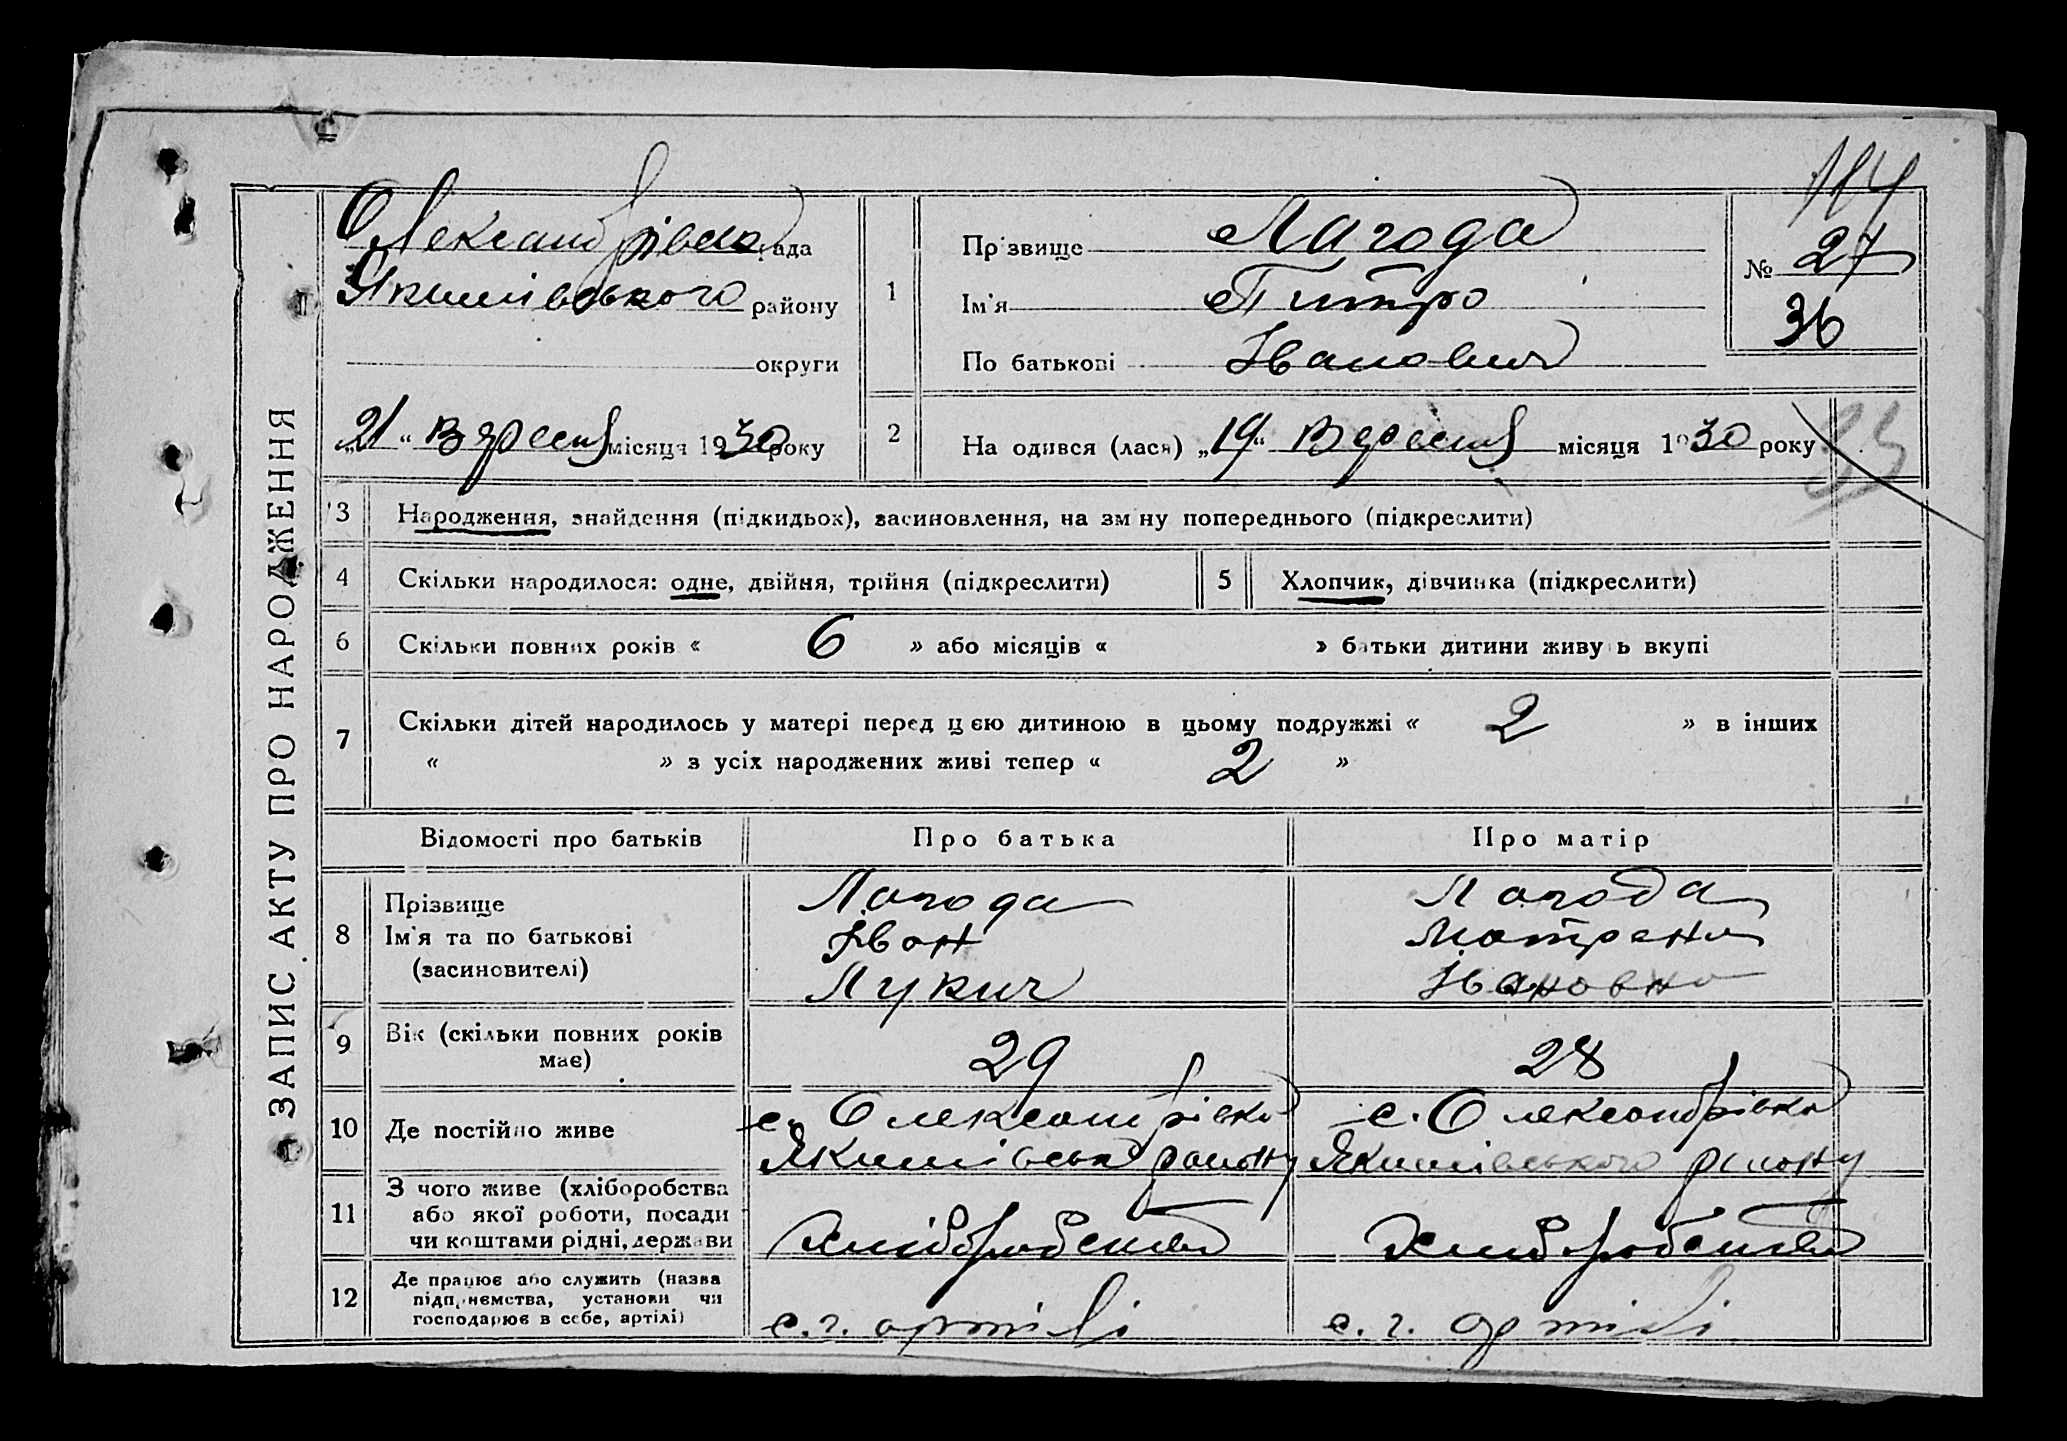 ЗАПИС АКТУ ПРО НАРОДЖЕННЯ
Олександрівська рада
Якимівського району
округи
„21“ Вересня місяця 1930 року
1
Прізвище Лагода
Ім'я Питро
По батькові Іванович
114
№ 27
36
2
На одився (лася) „19“ Вересня місяця 1930 року
33
3 Народження, знайдення (підкидьок), засиновлення, на зміну попереднього (підкреслити)
4 Скільки народилося: одне, двійня, трійня (підкреслити)
5 Хлопчик, дівчинка (підкреслити)
6 Скільки повних років « 6 » або місяців « » батьки дитини живуть вкупі
7 Скільки дітей народилось у матері перед цією дитиною в цьому подружжі « 2 » в інших
« » з усіх народжених живі тепер « 2 »
Відомості про батьків Про батька Про матір
8 Прізвище
Ім'я та по батькові
(засиновителі)
Лагода
Іван
Лукич
Лагода
Мотрена
Івановна
9 Вік (скільки повних років
має)
29
28
10 Де постійно живе
с. Олександрівка
Якимівськ району
с. Олександрівка
Якимівського району
11 З чого живе (хліборобства
або якої роботи, посади
чи коштами рідні, держави
хліборобства
хліборобства
12 Де працює або служить (назва
підприємства, установи чи
господарює в себе, артілі)
с. г. артілі
с. г. артілі